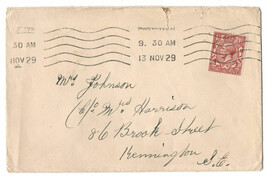 30 AM
NOV 29
9. 30 AM
13 NOV 29
Mrs Johnson
C/o Mrs Harrison
86 Brook Street
Kennington
S.E.